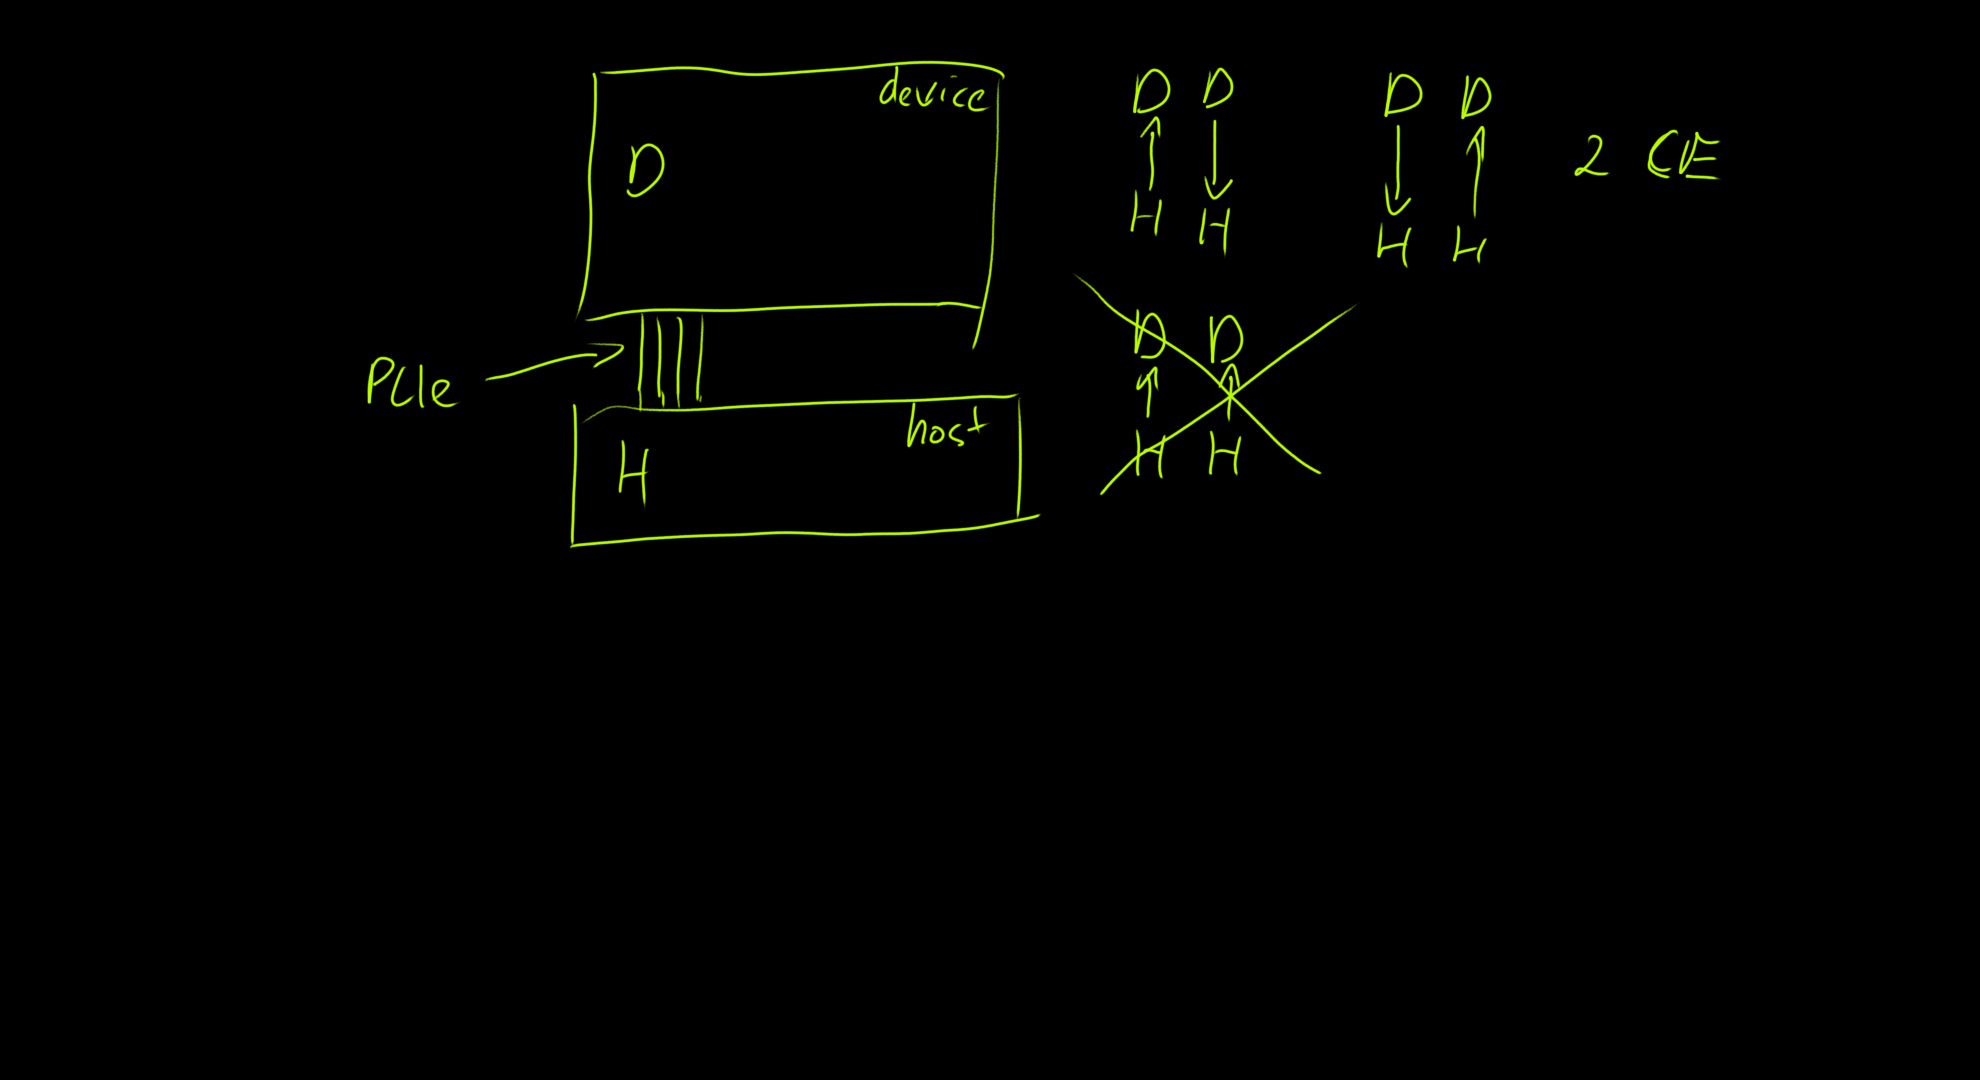 device
D
PCIe
host
H
D D D D
H H H H
2 CE
D D
H H